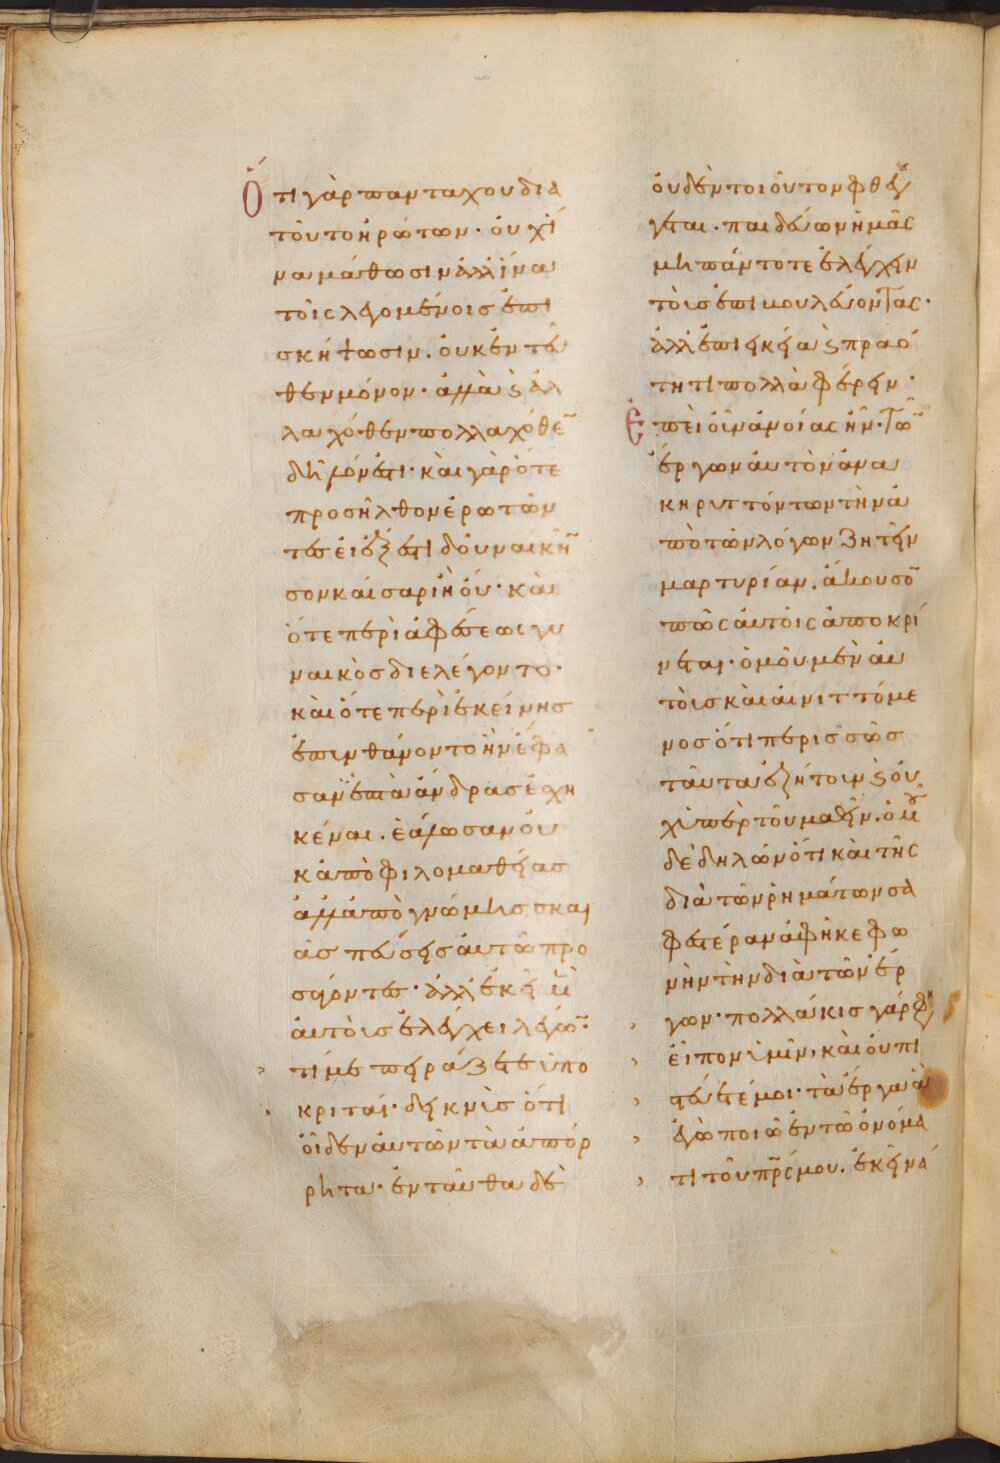 Ὅτι γὰρ πανταχοῦ διὰ
τοῦτο ἠρώτων· οὐχ ἵ
να μάθωσιν ἀλλ' ἵνα
τοῖς λεγομένοις ἐπι
σκήψωσιν. οὐκ ἐντεῦ
θεν μόνον· ἀλλὰ ϗ ἀλ
λαχόθεν πολλαχόθε̄
δῆλόν ἐστι· καὶ γὰρ ὅτε
προσῆλθον ἐρωτῶν
τες εἰ ἔξεστι δοῦναι κῆν̄
σον καίσαρι ἢ οὔ· καὶ
ὅτε περὶ ἀφέσεως γυ
ναικὸς διελέγοντο·
καὶ ὅτε περὶ ἐκείνης
ἐπυνθάνοντο ἣν ἔφα
σαν ἑπτὰ ἄνδρας ἐσχη
κέναι. ἑάλωσαν οὐ
κ ἀπὸ φιλομαθείας
ἀλλ' ἀπὸ γνώμης σκαι
ᾶς πεύσεις αὐτῶ προ
σάγοντες· ἀλλ' ἐκεῖ μὲν
αὐτοὺς ἐλέγχει λέγων·
τί με πειράζετε ὑπο
κριταί· δεικνὺς ὅτι
οἶδεν αὐτῶν τὰ ἀπόρ
ρητα· ἐνταῦθα δὲ
οὐδὲν τοιοῦτον φθέγ
γεται· παιδεύων ἡμᾶς
μὴ πάντοτε ἐλέγχειν
τοὺς ἐπιβουλεύοντας·
ἀλλ' ἐπιεικεία ϗ πραό
τητι πολλὰ φέρειν·
Ἐπεὶ οὖν ἀνοίας ἦν· τῶ̄
ἔργων αὐτὸν ἀνα
κηρυττόντων τὴν ἀ
πὸ τῶν λόγων ζητεῖν
μαρτυρίαν. ἄκουσο̄
πῶς αὐτοῖς ἀποκρί
νεται· ὁμοῦ μὲν αὐ
τοῖς καὶ αἰνιττόμε
νος ὅτι περισσῶς
ταῦτα ἐζήτουν ϗ οὐ
χ ὑπὲρ τοῦ μαθεῖν. ὁμοῦ
δὲ δηλῶν ὅτι καὶ τῆς
διὰ τῶν ῥημάτων σα
φεστέραν ἀφῆκε φω
νὴν τὴν διὰ τῶν ἔρ
γων· πολλάκις γάρ φη
εἶπον ὑμῖν, καὶ οὐ πι
στεύετέ μοι· τὰ ἔργα ἃ
ἐγὼ ποιῶ ἐν τῶ ὀνόμα
τι τοῦ πρ̄ς μου. ἐκεῖνά